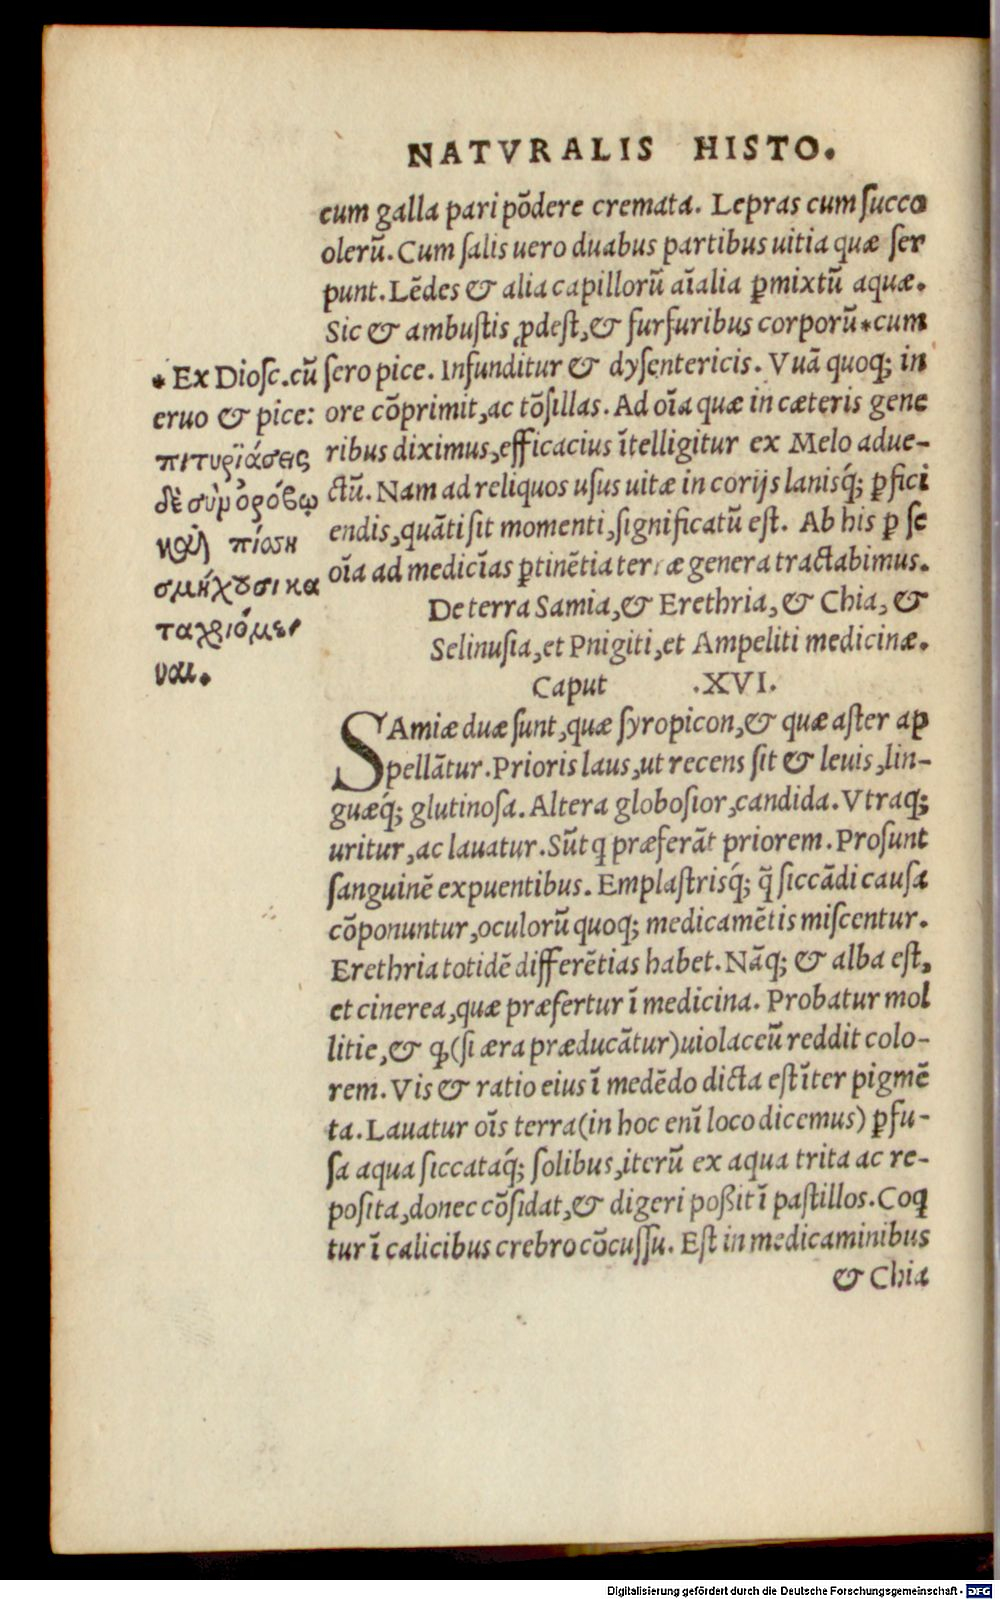 NATVRALIS HISTO.
cum galla pari põdere cremata. Lepras cum ſucco
olerũ. Cum ſalis uero duabus partibus uitia quæ ſer
punt. Lẽdes & alia capillorũ aĩalia ꝑmixtũ aquæ.
Sic & ambuſtis ꝓdeſt, & furfuribus corporũ * cum
ſero pice. Infunditur & dyſentericis. Vuã quoq; in
ore cõprimit, ac tõſillas. Ad oĩa quæ in cæteris gene
ribus diximus, efficacius ĩtelligitur ex Melo adue-
ctũ. Nam ad reliquos uſus uitæ in corijs laniſq́; ꝑfici
endis, quãti ſit momenti, ſignificatũ eſt. Ab his ꝑ ſe
oĩa ad medicĩas ꝑtinẽtia terræ genera tractabimus.
* Ex Dioſc. cũ
eruo & pice:
πιτυρϊάσεις
δὲ σὺμ ὀρόβῳ
καὶ πίσσῃ
σμήχουσι κα
ταχριόμε-
ναι.
De terra Samia, & Erethria, & Chia, &
Selinuſia, et Pnigiti, et Ampeliti medicinæ.
Caput .XVI.
SAmiæ duæ ſunt, quæ ſyropicon, & quæ aſter ap
pellãtur. Prioris laus, ut recens ſit & leuis, lin-
guæq́; glutinoſa. Altera globoſior, candida. Vtraq;
uritur, ac lauatur. Sũt q præferãt priorem. Proſunt
ſanguinẽ expuentibus. Emplaſtriſq́; q̃ ſiccãdi cauſa
cõponuntur, oculorũ quoq; medicamẽtis miſcentur.
Erethria totidẽ differẽtias habet. Nãq; & alba eſt,
et cinerea, quæ præfertur ĩ medicina. Probatur mol
litie, & ꝙ, (ſi æra præducãtur) uiolaceũ reddit colo-
rem. Vis & ratio eius ĩ medẽdo dicta eſt ĩter pigmẽ
ta. Lauatur oĩs terra (in hoc enĩ loco dicemus) ꝑfu-
ſa aqua ſiccataq́; ſolibus, iterũ ex aqua trita ac re-
poſita, donec cõſidat, & digeri poßit ĩ paſtillos. Coq
tur ĩ calicibus crebro cõcuſſu. Eſt in medicaminibus
& Chia
Digitalisierung gefördert durch die Deutsche Forschungsgemeinschaft - DFG